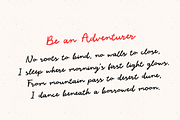 Be an Adventurer
No roots to bind, no walls to close,
I sleep where morning's first light glows.
From mountain pass to desert dune,
I dance beneath a borrowed moon.